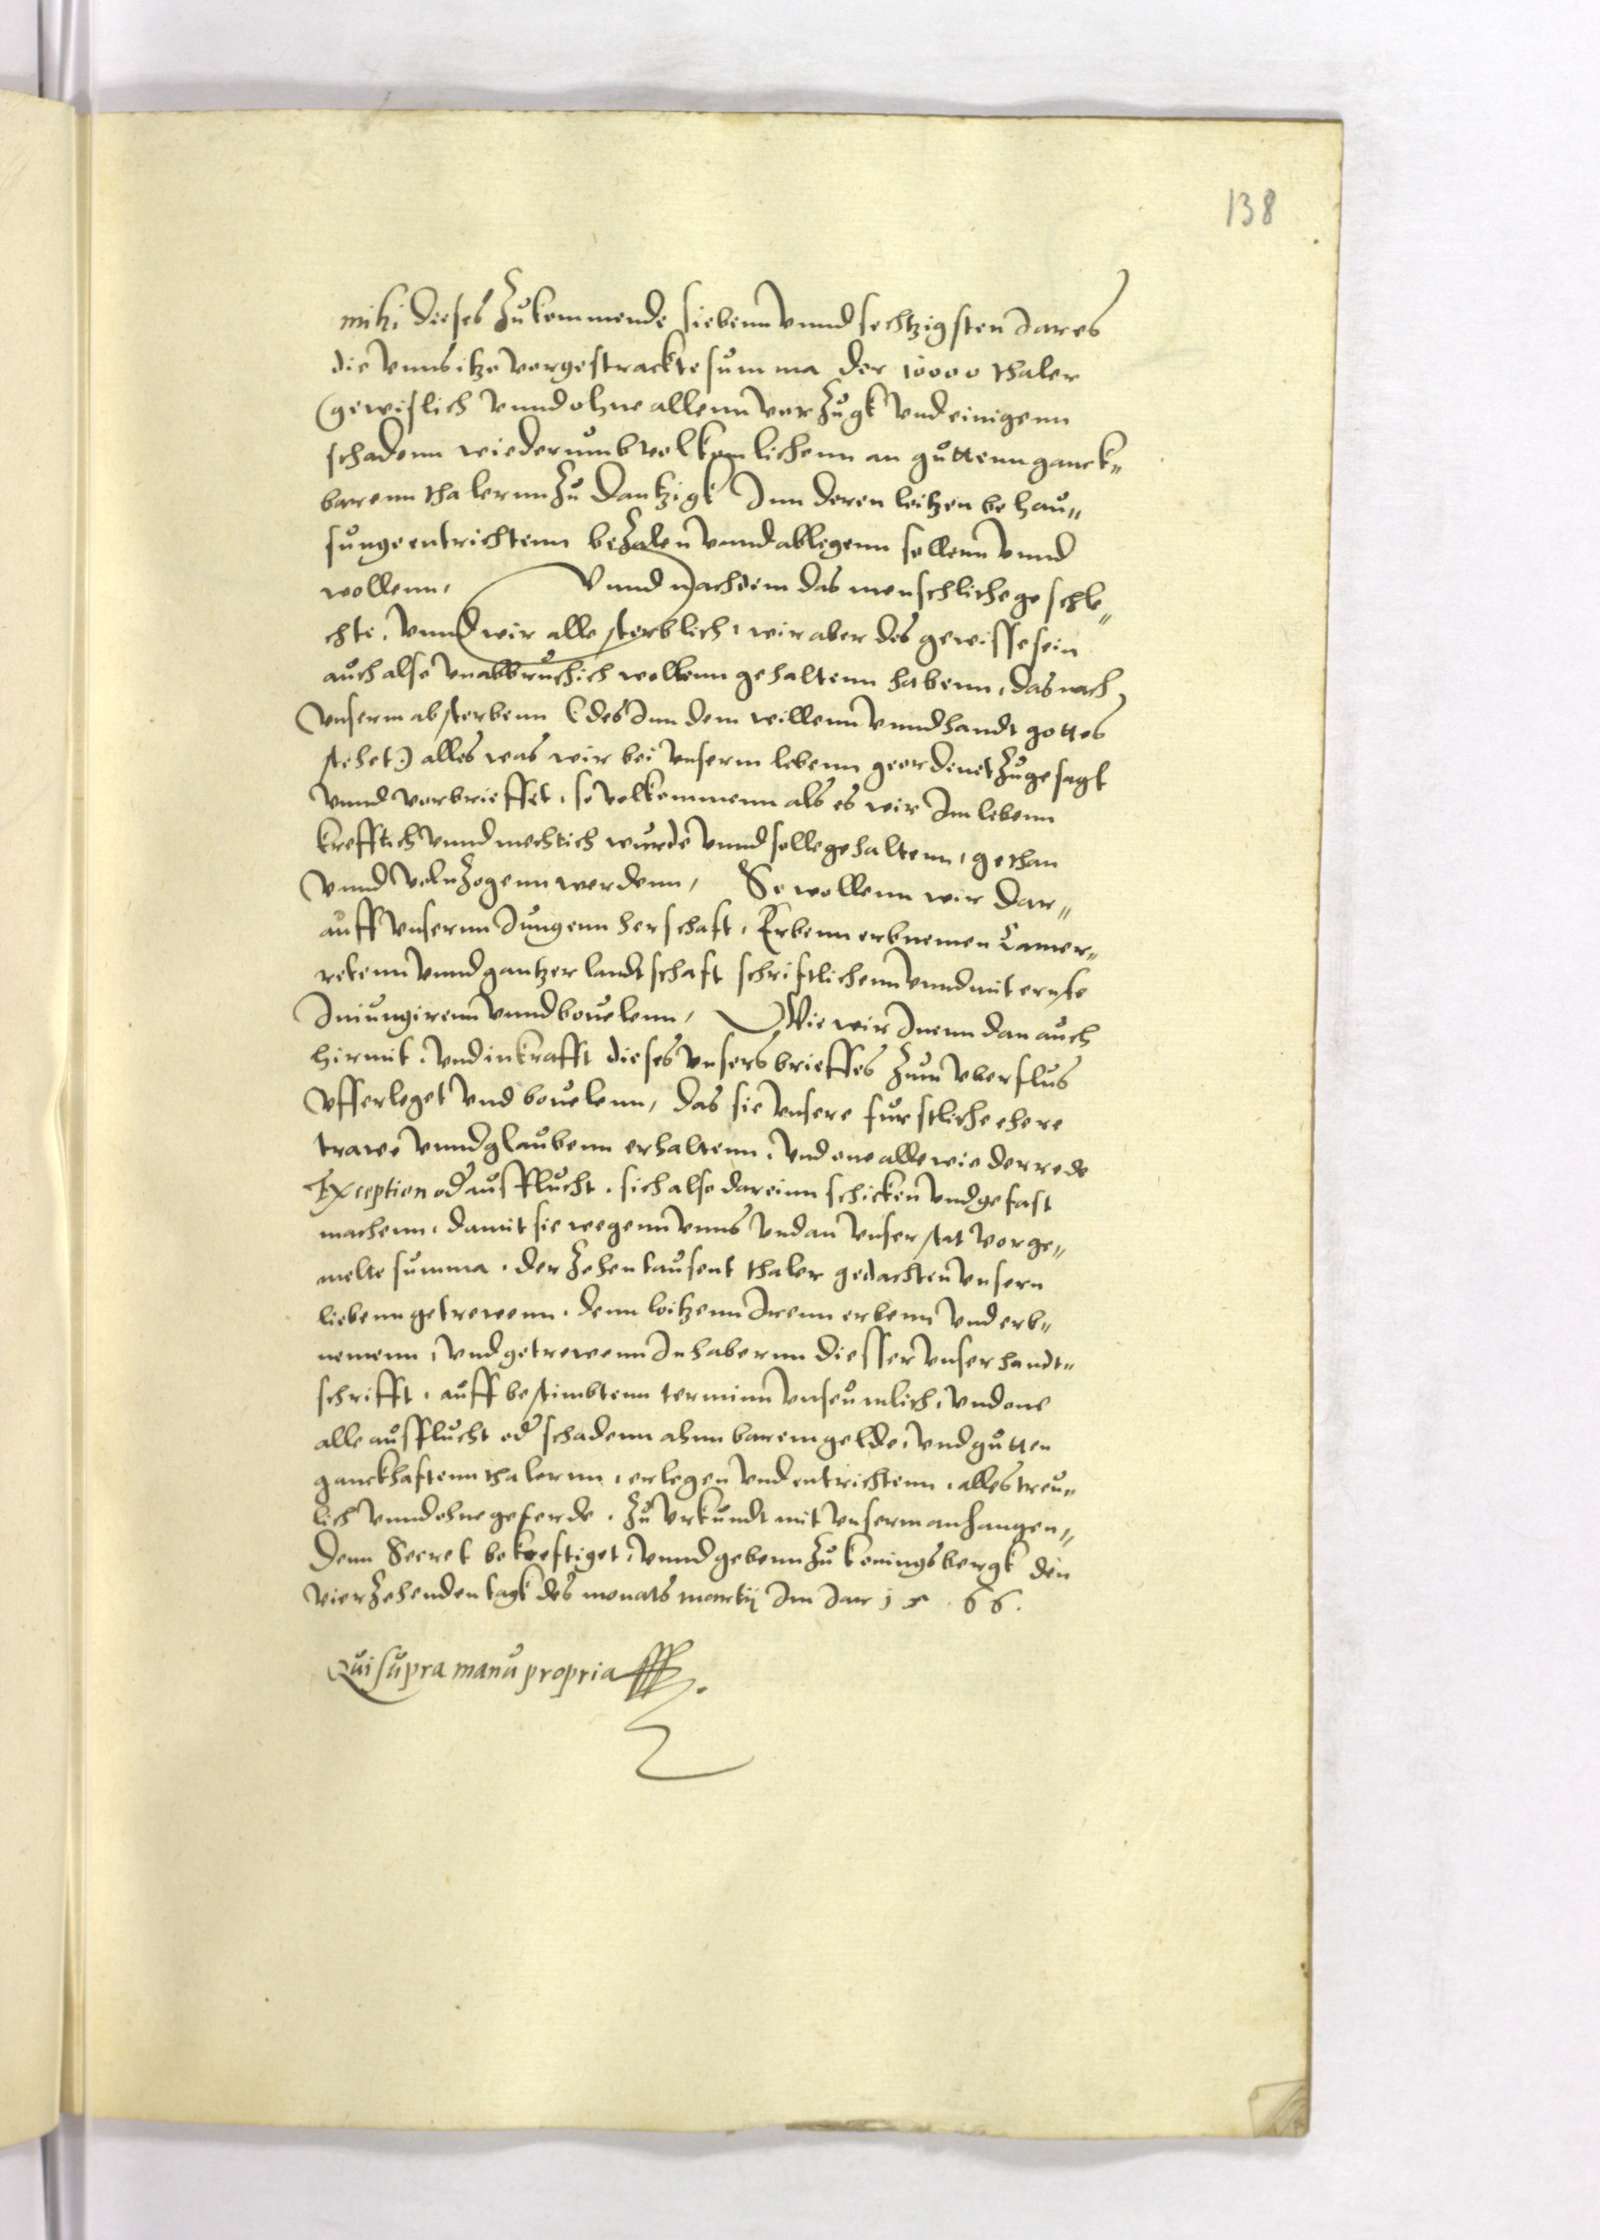 138
miki dieses Zukommende siebenn vnnd sechtzigsten Jares
die vnns itzo vorgestrackte summa der 10000 thaler
gewislich vnnd ohne allenn vorZugk vnd einigenn
schadenn wiederumb volkomlichenn an guttenn ganck„
barenn thalernn Zu Dantzigk Inn deren loitzen behau„
sunge entrichtenn beZalen vnnd ablegenn sollenn vnnd
wollenn, Vnnd Nachdem das menschliche geschle„
chte, vnnd wir alle sterblich, wir aber des gewisse sein
auch also vnabbruchich wollenn gehaltenn habenn, das nach
vnserm absterbenn (: des Inn dem willenn vnnd handt gottes
stehet :) alles was wir bei vnserm lebenn geordenet Zugesagt
vnnd vorbriefft, so volkommenn als es wir Im lebenn
krefftich vnnd mechtich wurde vnnd solle gehaltenn, gethan
vnnd volnZogenn werdenn, So wollenn wir dar„
auff vnsernn Jungenn herschaft, Erbenn erbnemen Camer„
retenn vnnd gantzer landtschaft schriftlichenn vnnd mit ernste
Iniungirenn vnnd bouelenn, Wie wir Inenn dan auch
hirmit, vnd in krafft dieses vnsers brieffes Zum vberflus
vfferleget vnd bouelenn, das sie vnsere furstliche ehere
trawe vnnd glaubenn erhaltenn, vnd one alle wiederrede
Exception od ausflucht, sich also dareinn schicken vnd gefast
machenn, damit sie wegenn vnns vnd an vnser stat vorge„
melte summa, der Zehentausent thaler gedachten vnsern
liebenn getrewenn, denn loitzenn Irenn erbenn vnd erb„
nemenn, vnd getrewenn Inhabernn diesser vnser handt„
schrifft, auff bestimbtenn terminn vnseumlich, vnd one
alle ausflucht od schadenn ahnn barem gelde, vnd gutten
ganckhaftenn thalernn, erlegen vnd entrichtenn, alles treu„
lich vnnd ohne geferde, Zu vrkundt mit vnserm anhangen„
denn Secret bekreftiget, vnnd gebenn Zu konningsbergk den
vierZehenden tagk des monats martij Im Jar 1566.
Qui supra manu propria